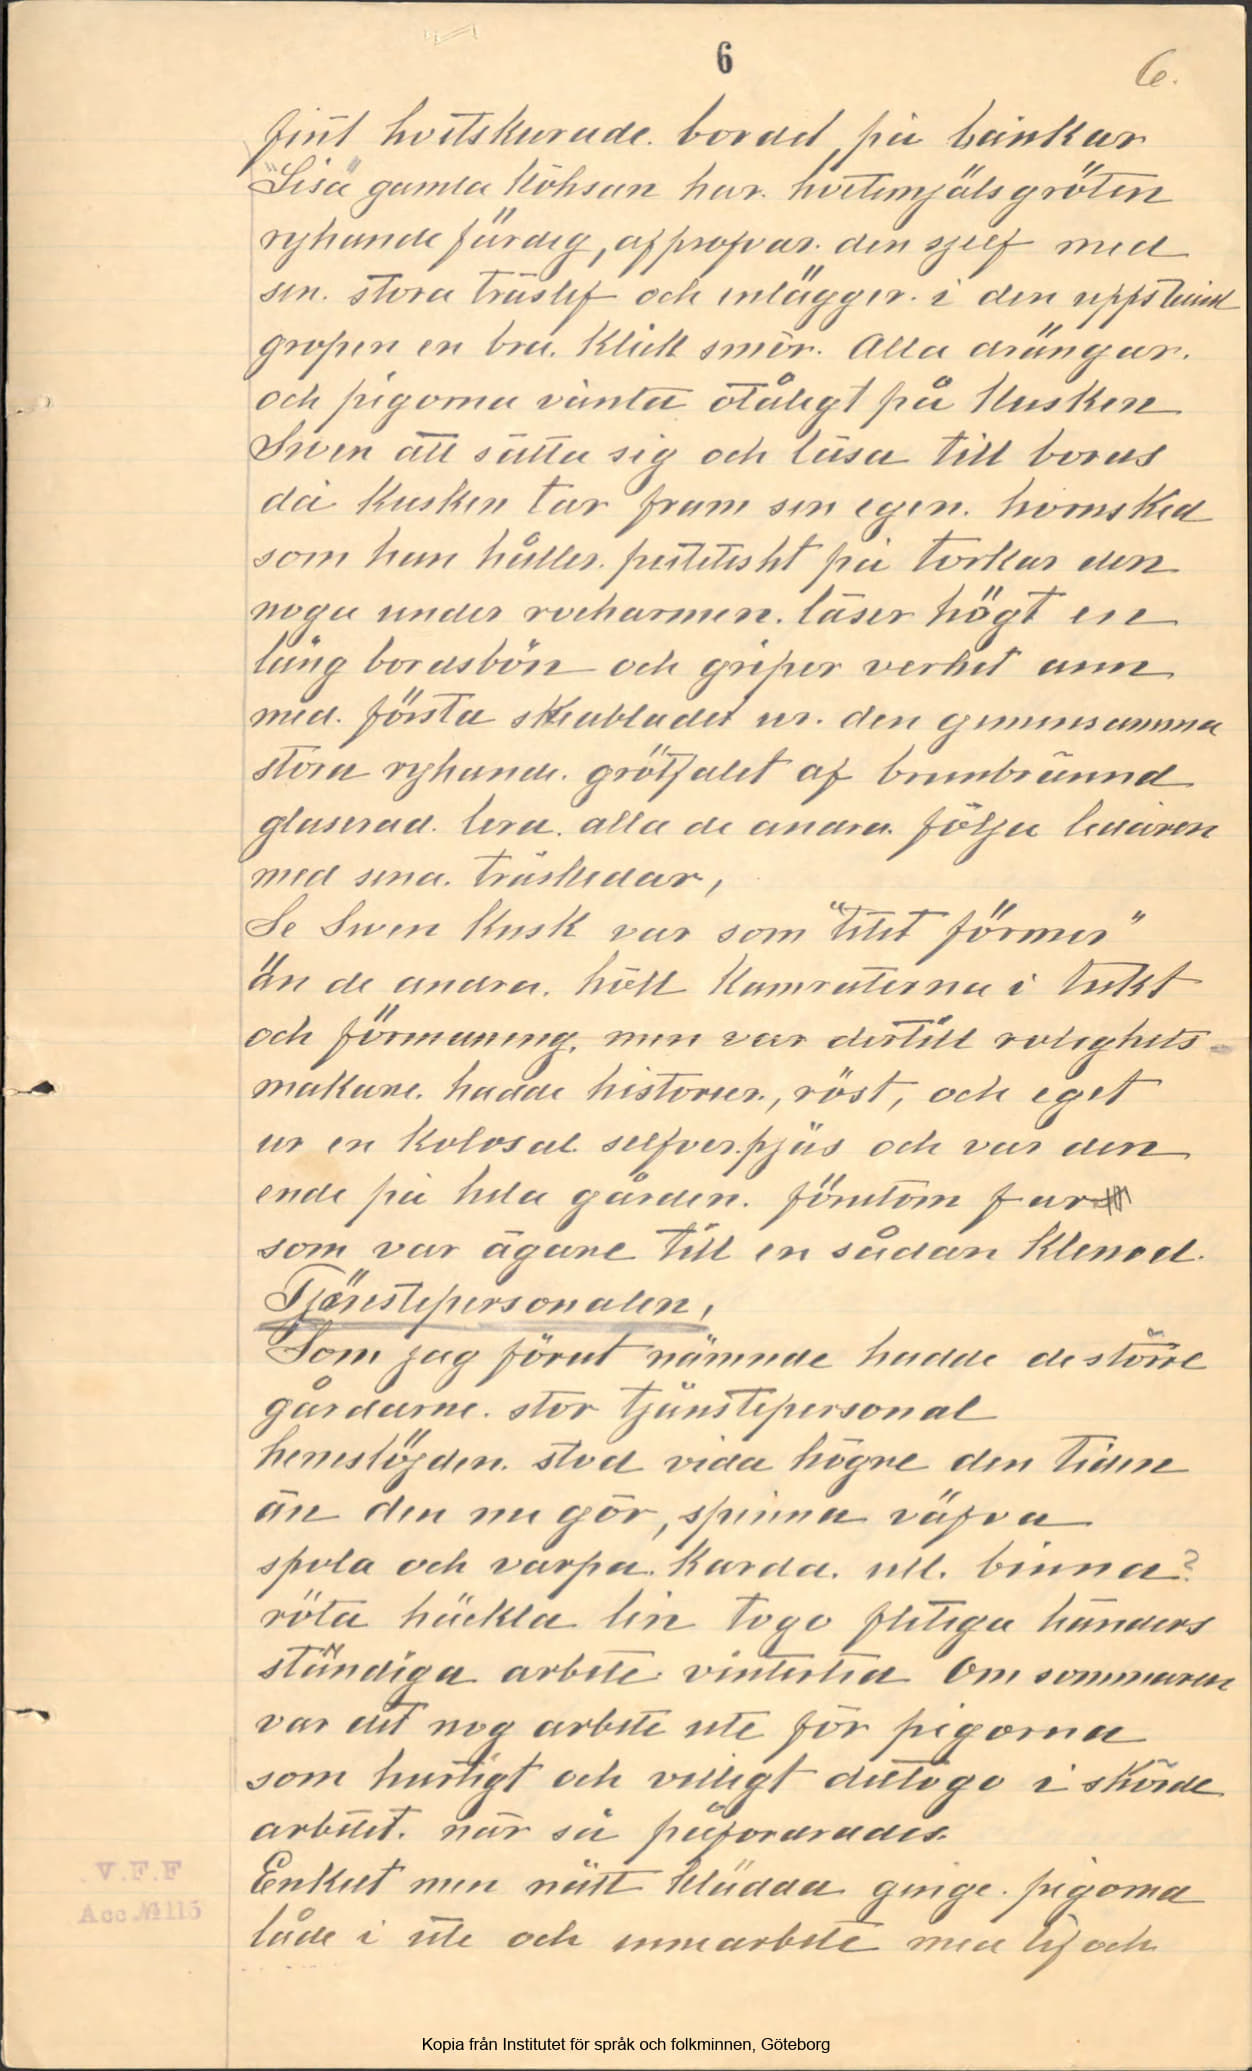 6
6.
fint hvitskurade. bordet, på bänkar
"Lisa" gamla Köksan har. hvetemjölsgröten
rykande färdig, afprofvar. den sjelf med
sin. stora träslef och inlägger. i den uppståend
gropen en bra. Klick smör. Alla drängar.
och pigorna vänta otåligt på Kusken
Swen att sätta sig och läsa till bords
då Kusken tar fram sin egen. hornsked
som han håller. petitiskt på torkar den
noga under rockarmen. läser högt en
lång bordsbön och griper verket ann
med. första skeabladet ur. den gemensamma
stora rykande. grötfatet af brunbrännd
glaserad. lera. alla de andra. följa ledaren
med sina. träskedar,
Se Swen Kusk var som "litet förmer"
än de andra. höll Kamraterna i tukt
och förmaning. men var dertill rolighets-
makare. hadde historier., röst, och eget
ur en Kolosal. selfver.pjäs och var den
ende på hela gården. förutom far
som var ägare till en sådan Klenod.
Tjänstepersonalen,
Som jag förut nämnde hadde de större
gårdarne. stor tjänstepersonal
hemslöjden. stod vida högre den tiden
än den nu gör, spinna väfva
spola och varpa. Karda. ull. binna?
röta häckla lin togo flitiga händers
ständiga arbete. vintertid Om sommaren
var det nog arbete ute för pigorna
som hurtigt och villigt deltogo i skörde
arbetet. när så påfordrades.
Enkelt men nätt klädda ginge. pigorna
både i ute och innearbete med lif och
V.F.F
Acc. № 115
Kopia från Institutet för språk och folkminnen, Göteborg